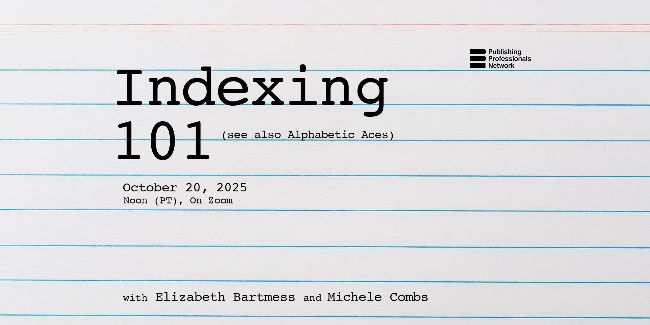 Publishing
Professionals
Network
Indexing
101 (see also Alphabetic Aces)
October 20, 2025
Noon (PT), On Zoom
with Elizabeth Bartmess and Michele Combs